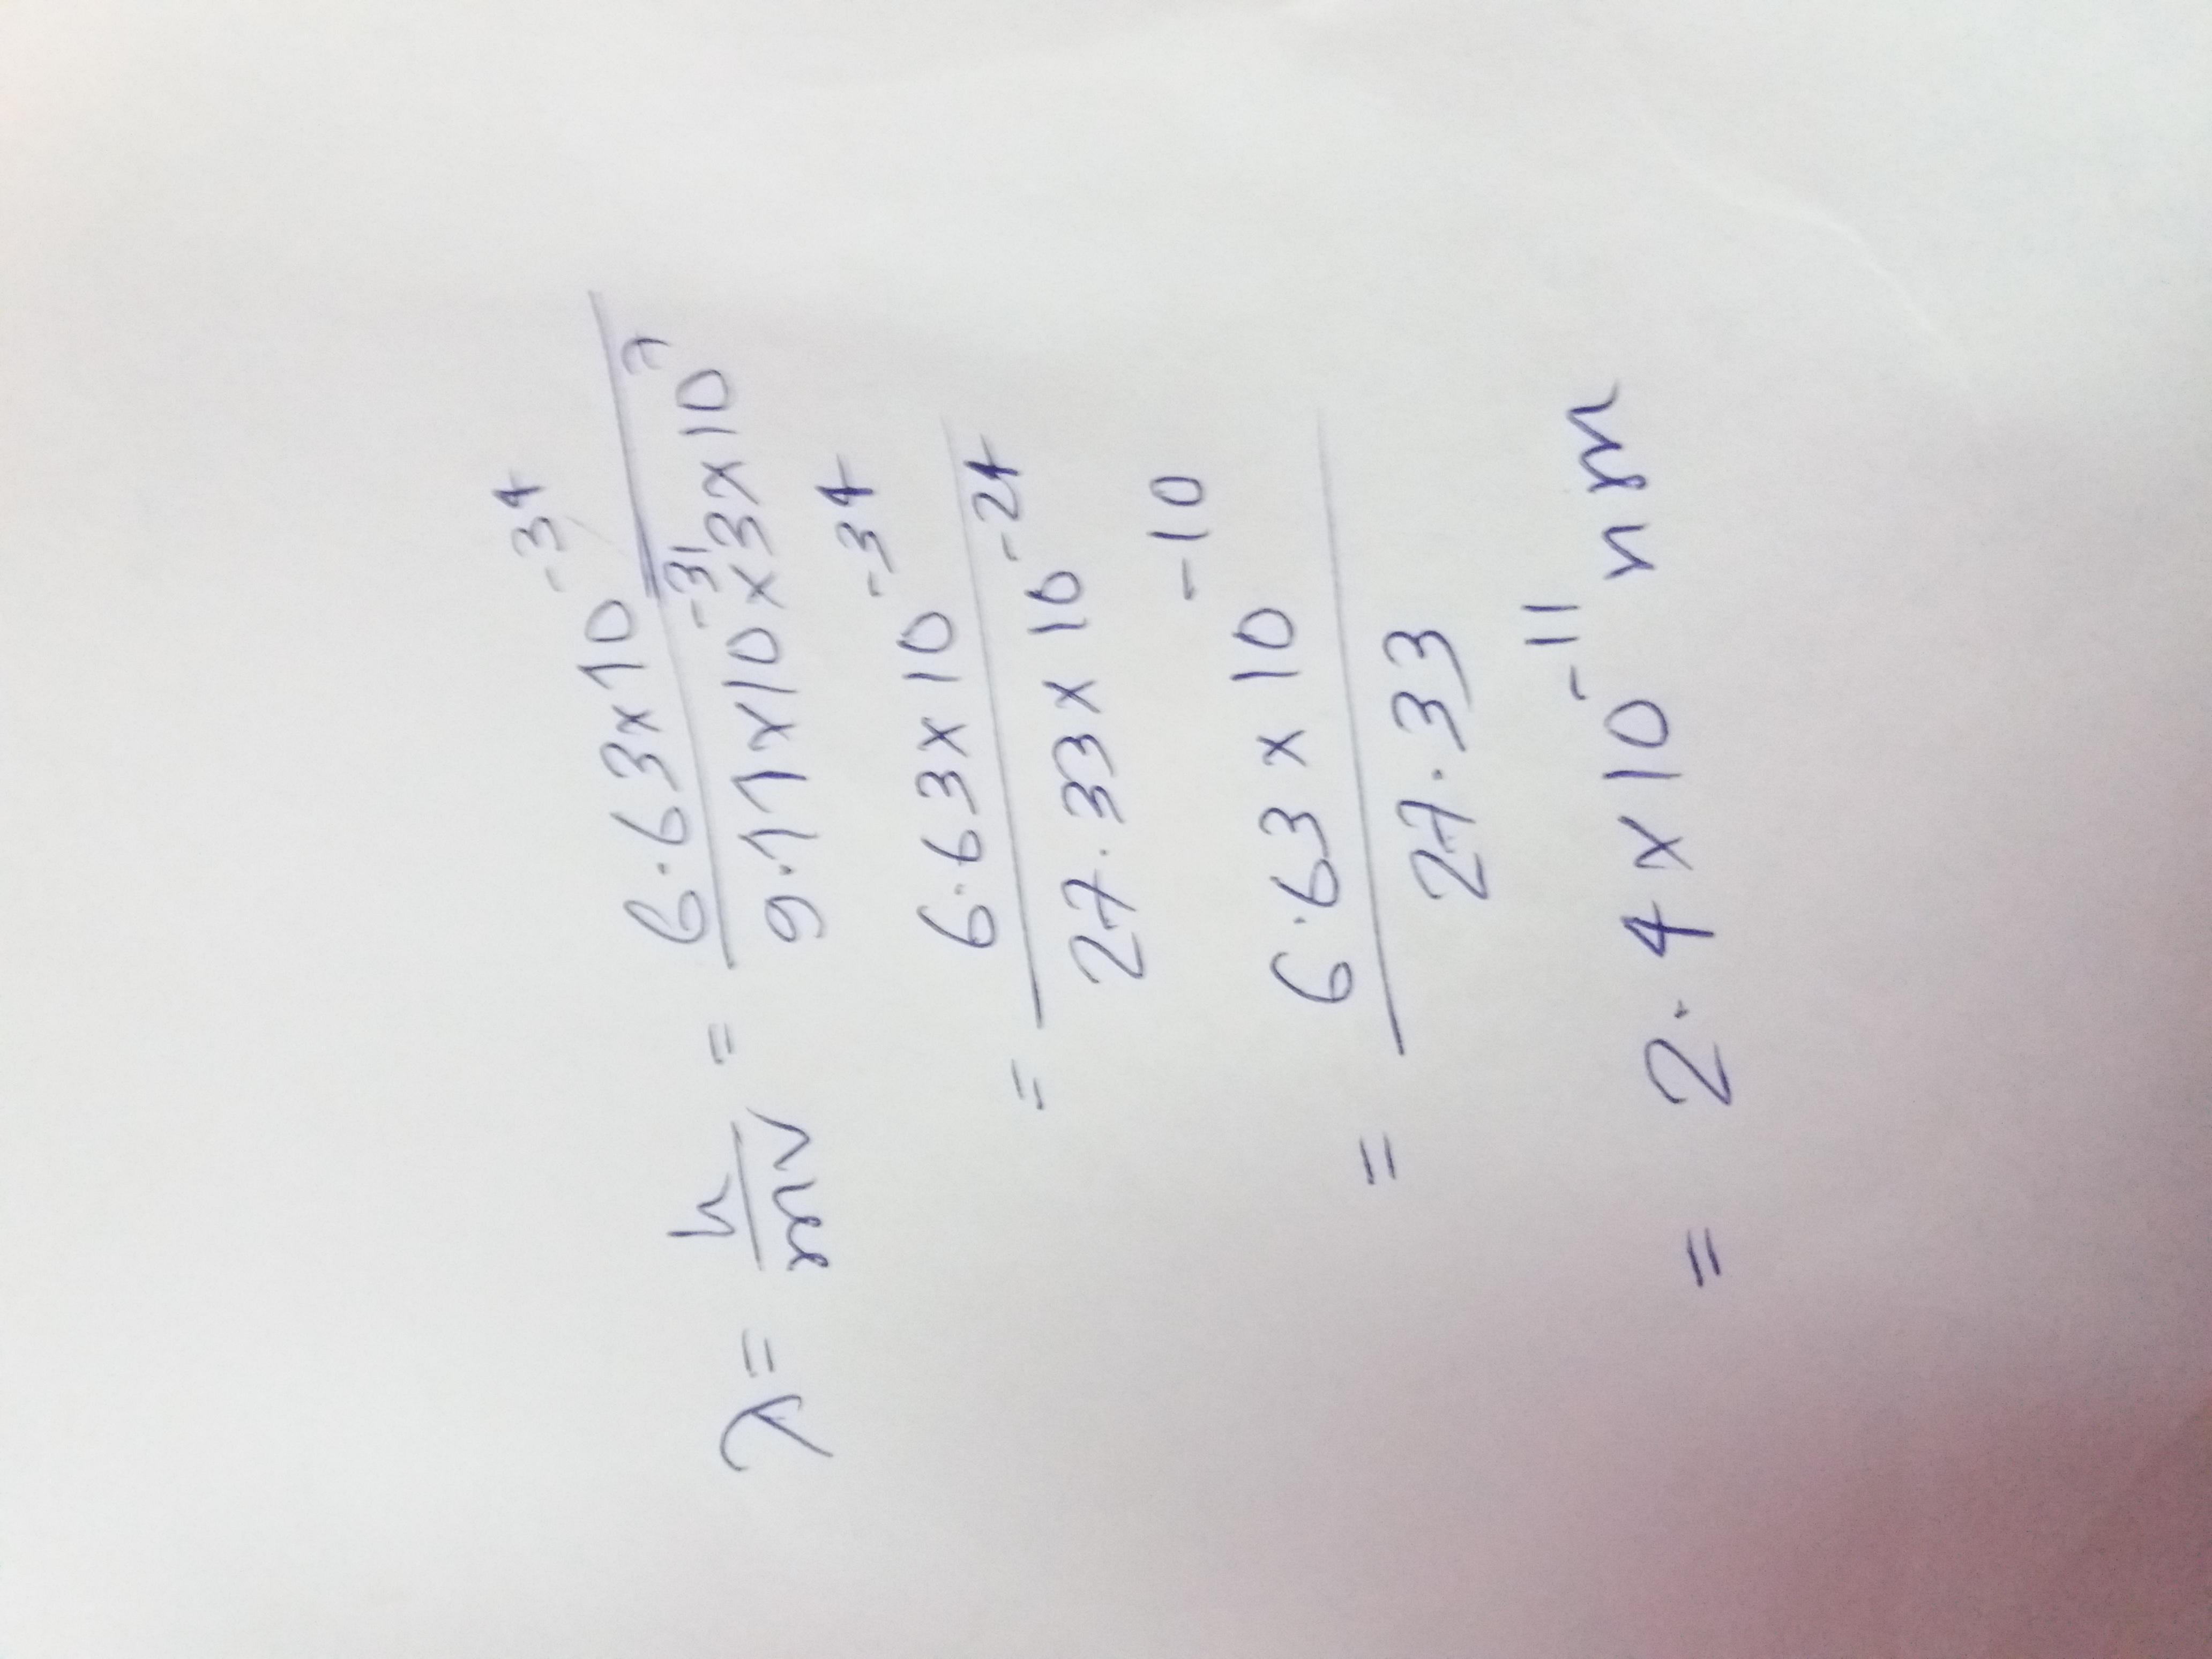 λ = h/mv = 6.63x10^-34 / 9.11x10^-31 x3x10^7
= 6.63x10^-34 / 27.33x10^-24
= 6.63x10^-10 / 27.33
= 2.4x10^-11 nm